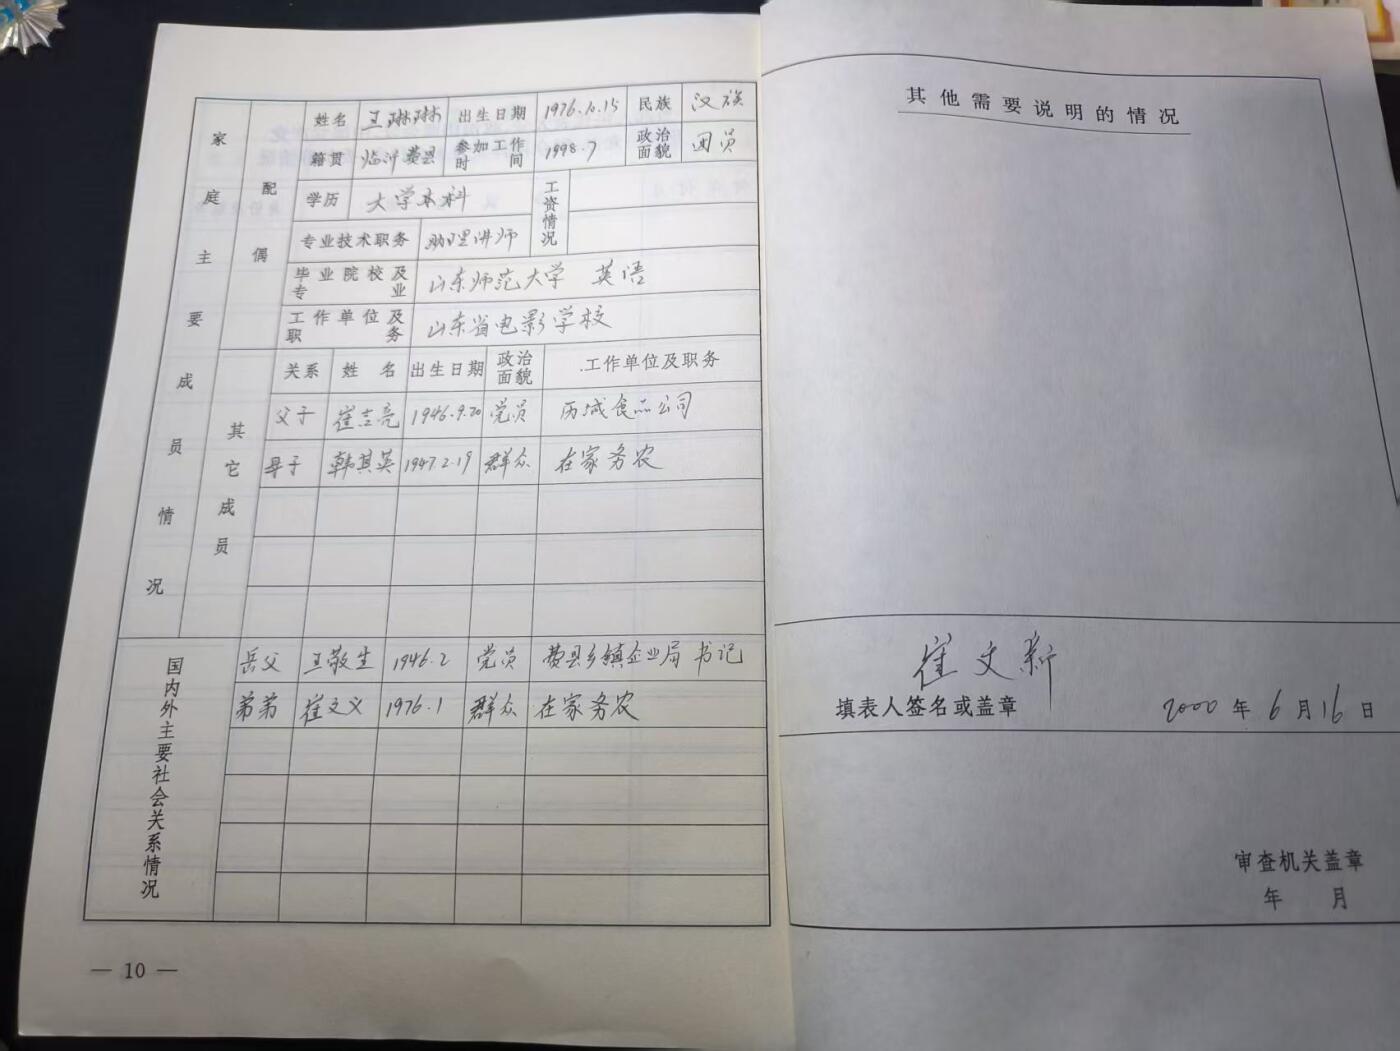 家庭主要成员情况
配偶
姓名 王琳琳 出生日期 1976.10.15 民族 汉族
籍贯 临沂费县 参加工作时间 1998.7 政治面貌 团员
学历 大学本科 工资情况
专业技术职务 助理讲师
毕业院校及专业 山东师范大学 英语
工作单位及职务 山东省电影学校
其它成员
关系 姓名 出生日期 政治面貌 工作单位及职务
父子 崔立亮 1946.9.20 党员 历城食品公司
母子 韩其英 1947.2.19 群众 在家务农
国内外主要社会关系情况
岳父 王敬生 1946.2 党员 费县乡镇企业局 书记
弟弟 崔文义 1976.1 群众 在家务农
— 10 —
其他需要说明的情况
崔文新
填表人签名或盖章 2000 年 6 月 16 日
审查机关盖章
年 月